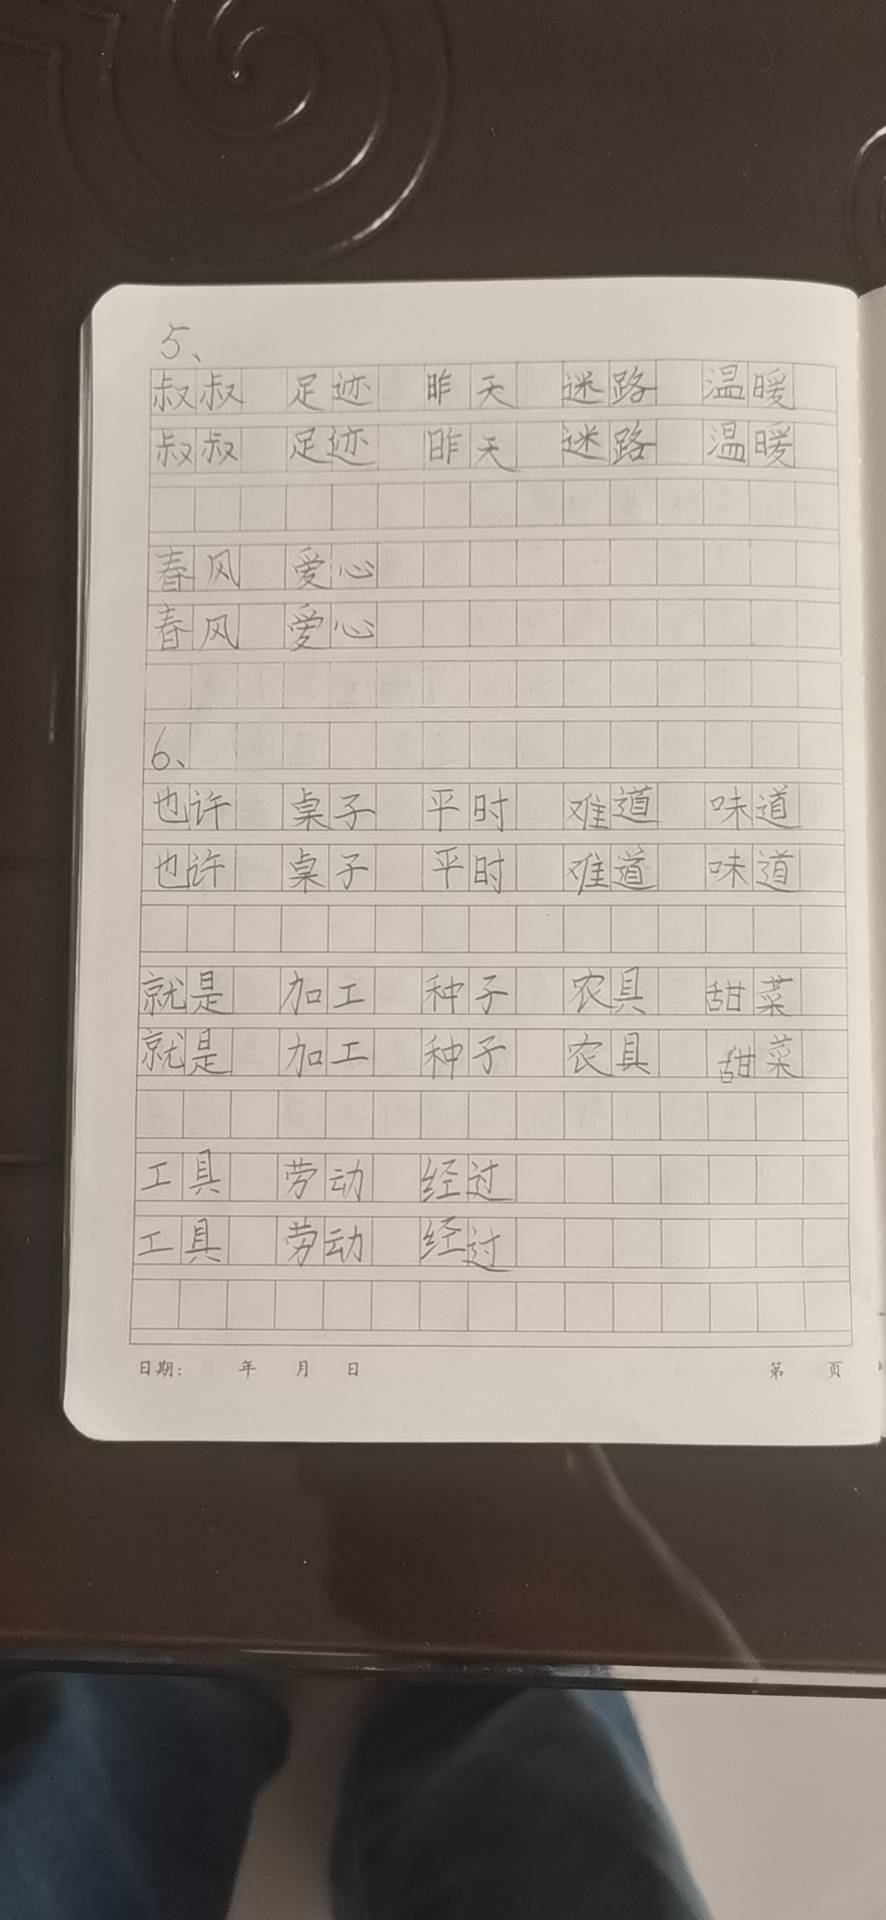 5、
叔叔 足迹 昨天 迷路 温暖
叔叔 足迹 昨天 迷路 温暖
春风 爱心
春风 爱心
6、
也许 桌子 平时 难道 味道
也许 桌子 平时 难道 味道
就是 加工 种子 农具 甜菜
就是 加工 种子 农具 甜菜
工具 劳动 经过
工具 劳动 经过
日期： 年 月 日 第 页